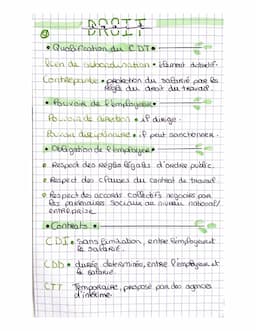 DROIT
• Qualification du CDT •
Lien de subordination • élément distinctif.
Contrepartie • protection du salarié par les
règles du droit du travail.
• Pouvoir de l'employeur •
Pouvoir de direction • il dirige.
Pouvoir disciplinaire • il peut sanctionner.
• Obligation de l'employeur •
• Respect des Règles légales d'ordre public.
• Respect des clauses du contrat de travail
• Respect des accords collectifs négociés par
les partenaires sociaux au niveau national/
entreprise
• Contrats •
CDI • Sans limitation, entre l'employeur et
le salarié.
CDD • durée déterminée, entre l'employeur et
le salarié.
CTT Temporaire, proposé par des agences
d'intérim.